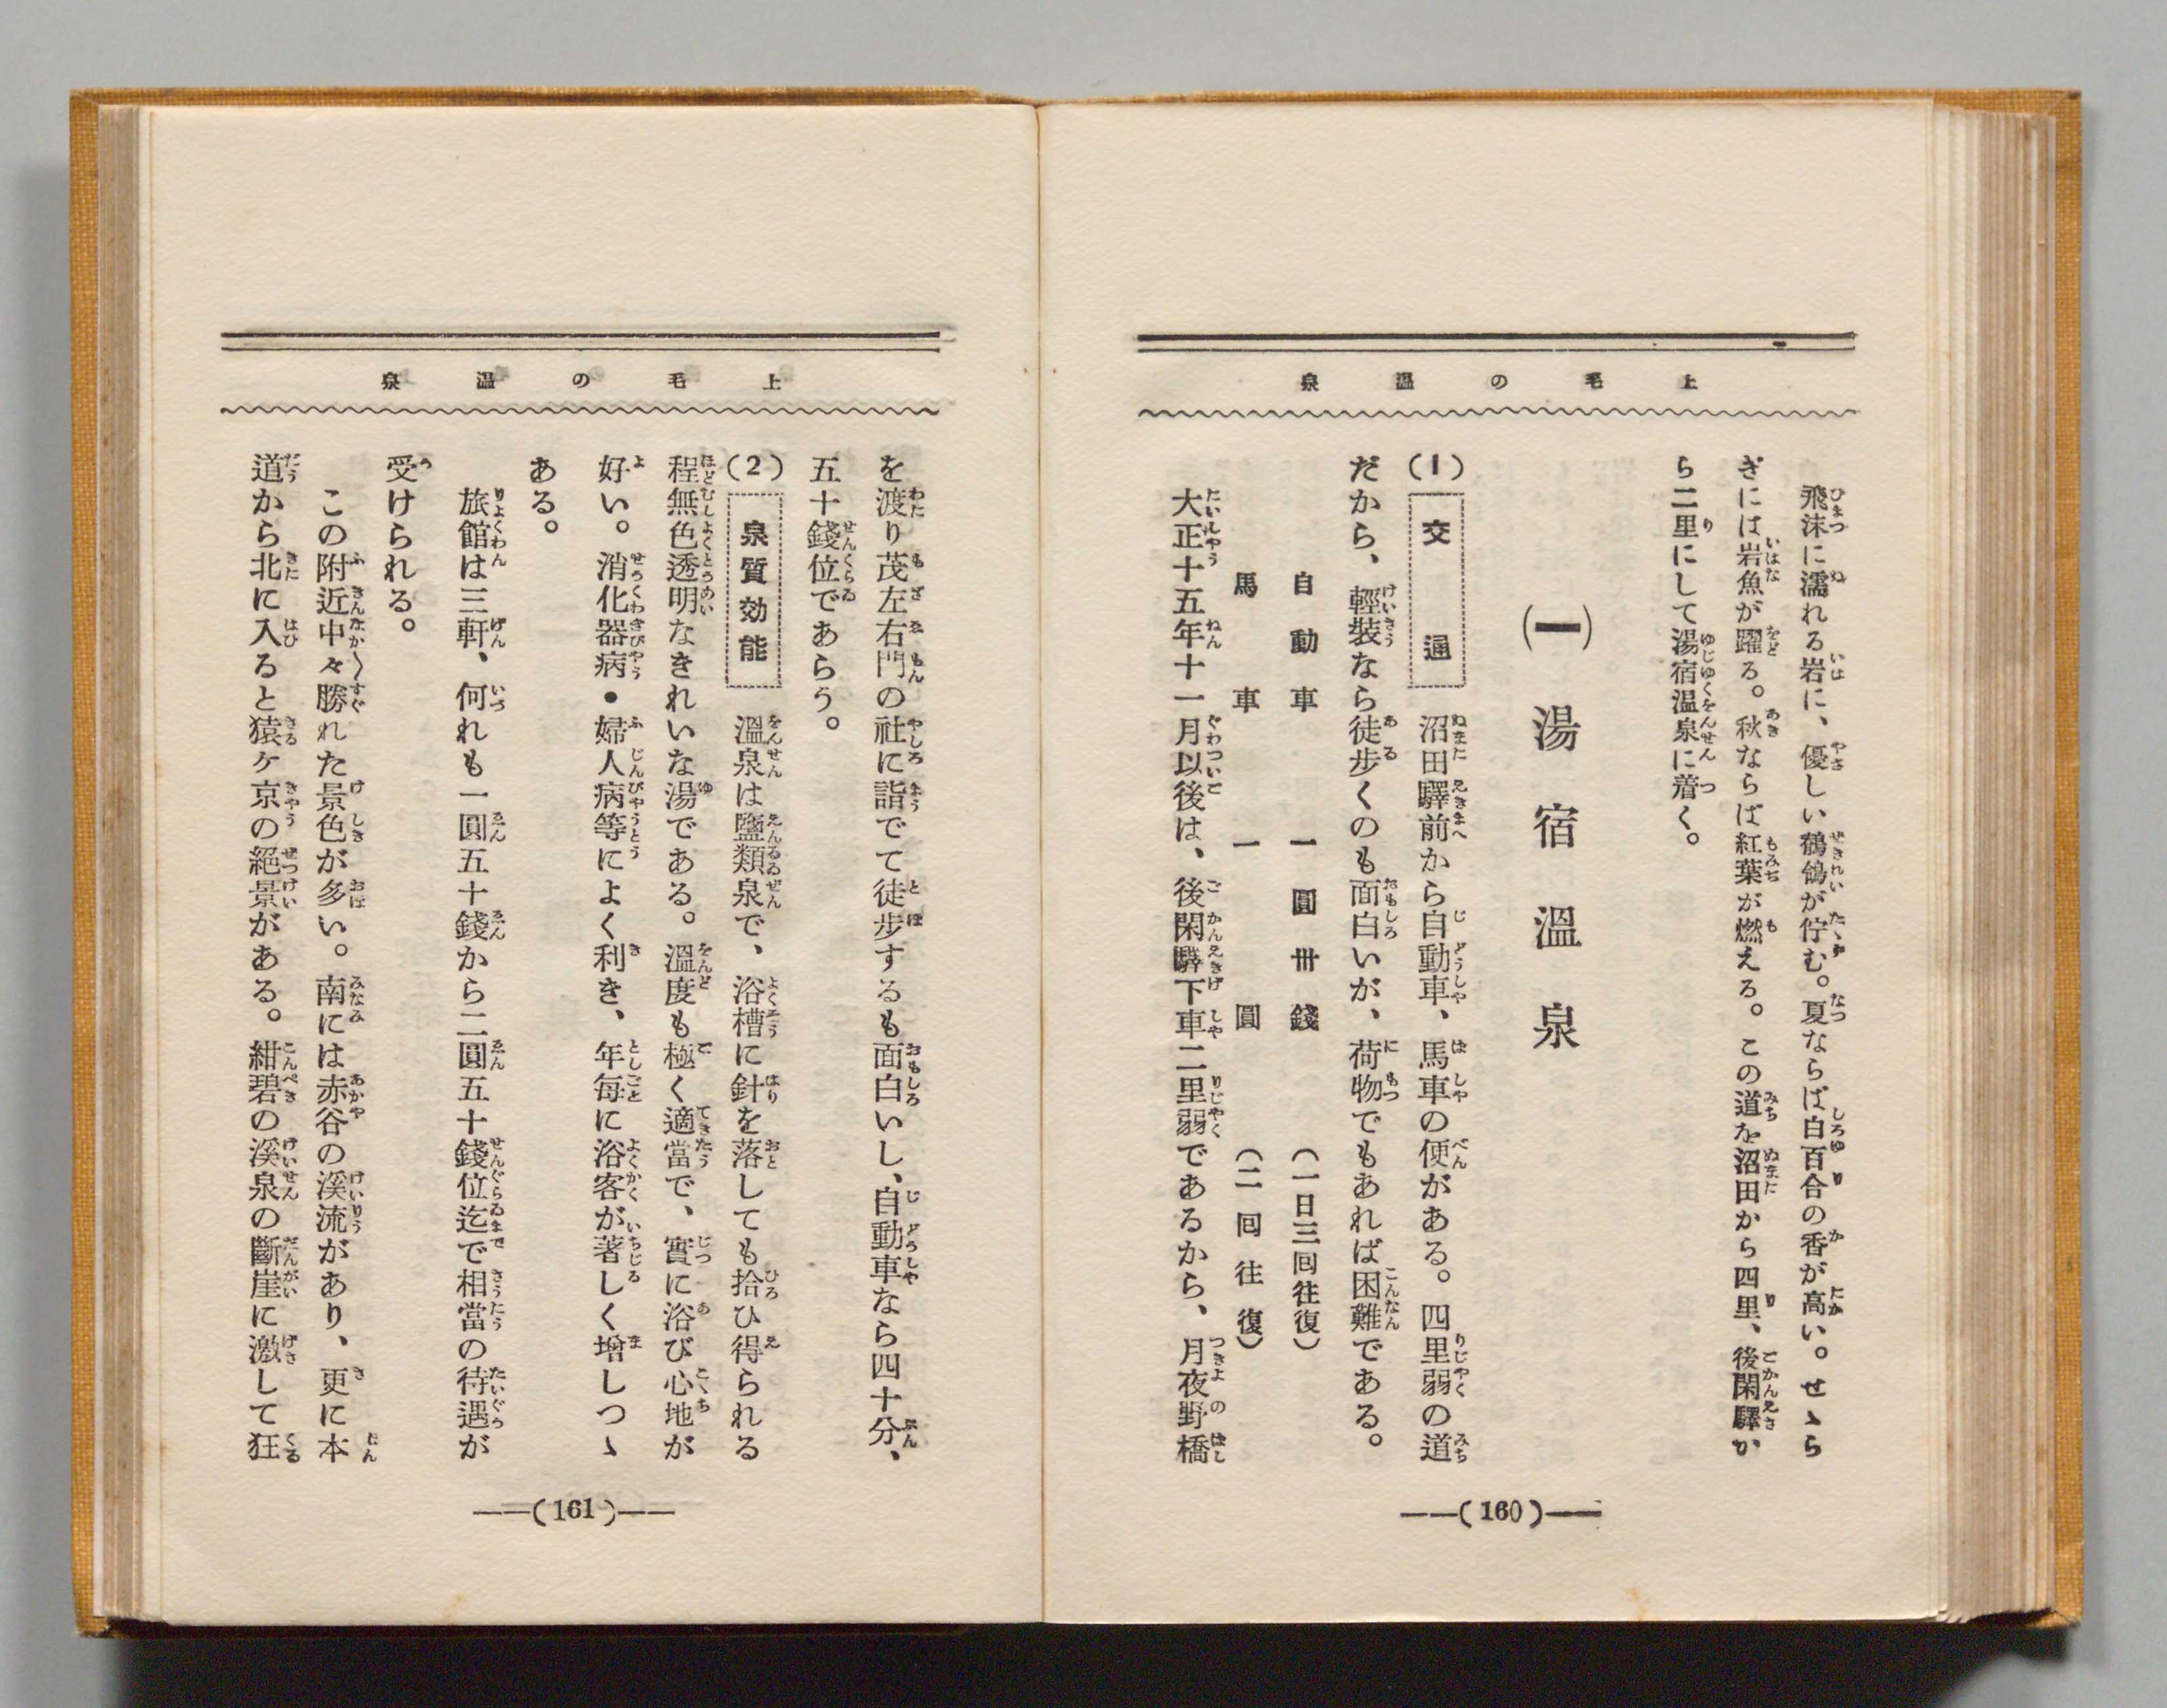 上毛の温泉
飛沫に濡れる岩に、優しい鶺鴒が佇む。夏ならば白百合の香が高い。せゝら
ぎには岩魚が躍る。秋ならば紅葉が燃える。この道を沼田から四里、後閑驛か
ら二里にして湯宿温泉に着く。
(一)湯宿溫泉
(1) 交通 沼田驛前から自動車、馬車の便がある。四里弱の道
だから、輕裝なら徒歩くのも面白いが、荷物でもあれば困難である。
自動車 一圓卅錢 (一日三囘往復)
馬車 一圓 (二囘往復)
大正十五年十一月以後は、後閑驛下車二里弱であるから、月夜野橋
(160)
上毛の溫泉
を渡り茂左右門の社に詣でて徒歩するも面白いし、自動車なら四十分、
五十錢位であらう。
(2) 泉質効能 溫泉は鹽類泉で、浴槽に針を落しても拾ひ得られる
程無色透明なきれいな湯である。溫度も極く適當で、實に浴び心地が
好い。消化器病・婦人病等によく利き、年每に浴客が著しく增しつゝ
ある。
旅館は三軒、何れも一圓五十錢から二圓五十錢位迄で相當の待遇が
受けられる。
この附近中々勝れた景色が多い。南には赤谷の溪流があり、更に本
道から北に入ると猿ケ京の絕景がある。紺碧の溪泉の斷崖に激して狂
(161)